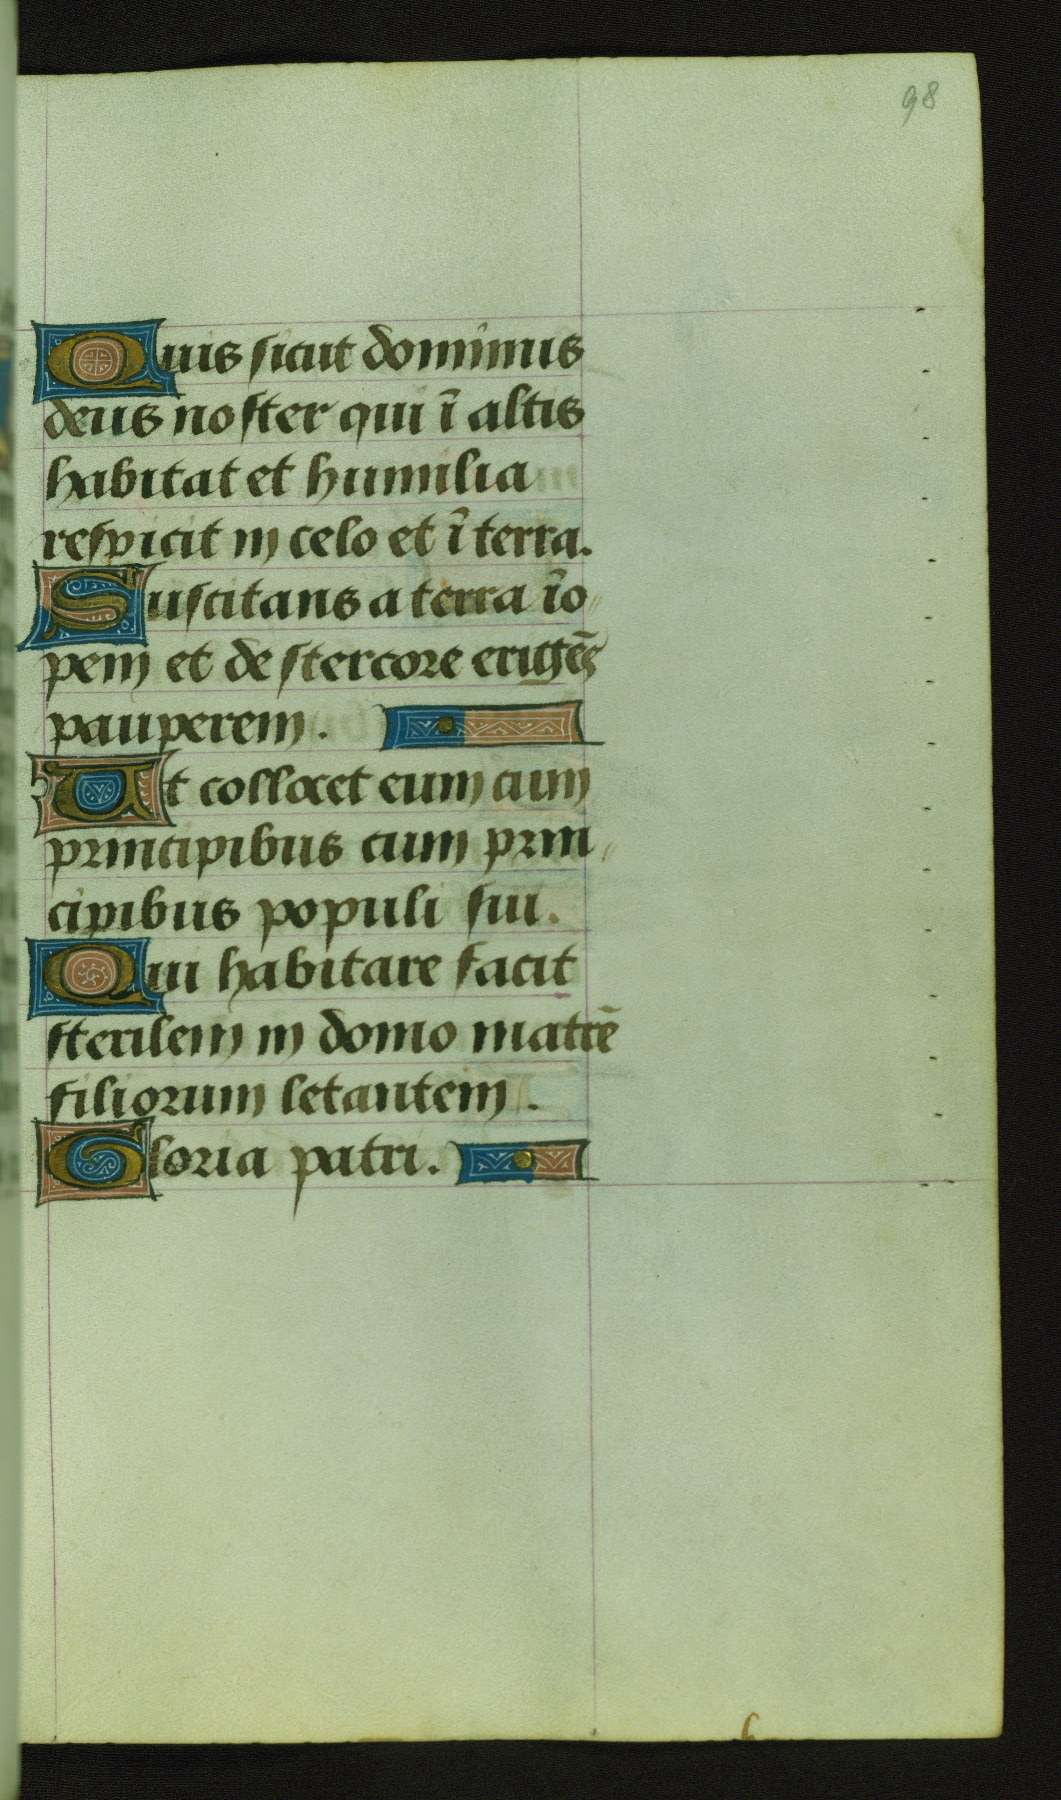 98
Quis sicut dominus
deus noster qui ī altis
habitat et humilia
respicit in celo et ī terra.
Suscitans a terra īo
pem et de stercore erigēs
pauperem.
Ut collocet eum cum
principibus cum prin
cipibus populi sui.
Qui habitare facit
sterilem in domo matrē
filiorum letantem.
Gloria patri.